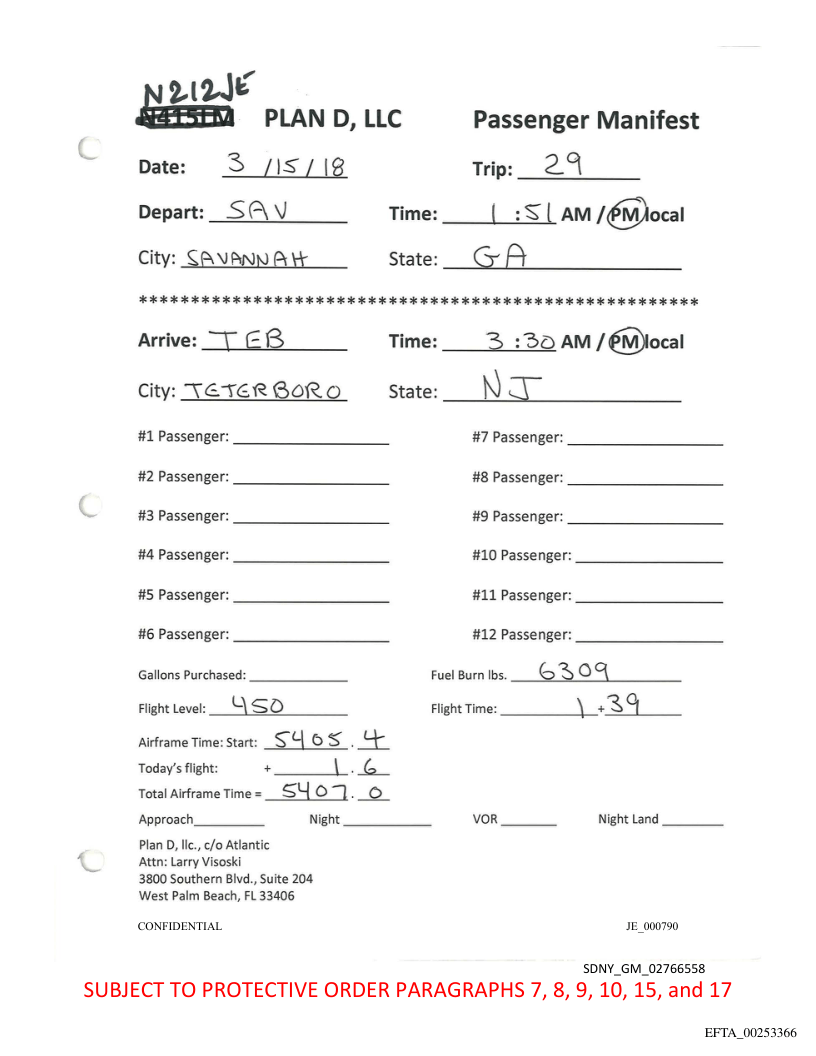 N212JE
N415LM PLAN D, LLC Passenger Manifest
Date: 3 /15/18 Trip: 29
Depart: SAV Time: 1 :51 AM / PM local
City: SAVANNAH State: GA
******************************************************
Arrive: TEB Time: 3 :30 AM / PM local
City: TETERBORO State: NJ
#1 Passenger: #7 Passenger:
#2 Passenger: #8 Passenger:
#3 Passenger: #9 Passenger:
#4 Passenger: #10 Passenger:
#5 Passenger: #11 Passenger:
#6 Passenger: #12 Passenger:
Gallons Purchased: Fuel Burn lbs. 6309
Flight Level: 450 Flight Time: 1 + 39
Airframe Time: Start: 5405 . 4
Today's flight: + 1 . 6
Total Airframe Time = 5407. 0
Approach Night VOR Night Land
Plan D, llc., c/o Atlantic
Attn: Larry Visoski
3800 Southern Blvd., Suite 204
West Palm Beach, FL 33406
CONFIDENTIAL JE_000790
SDNY_GM_02766558
SUBJECT TO PROTECTIVE ORDER PARAGRAPHS 7, 8, 9, 10, 15, and 17
EFTA_00253366